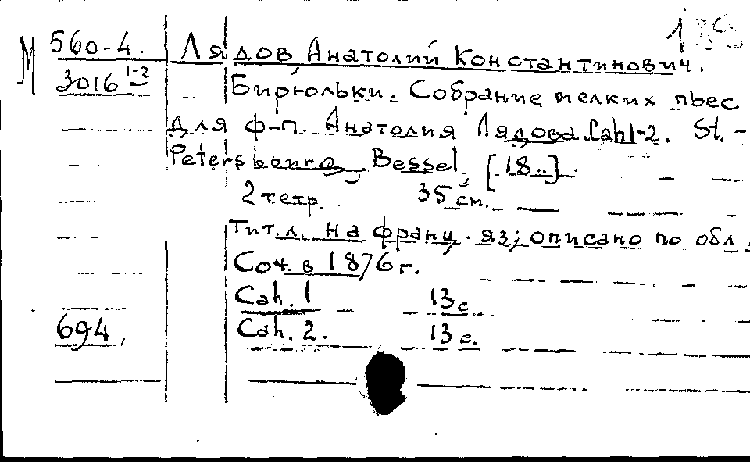 М 560-4. Лядов Анатолий Константинович.
3016 1-2 Бирюльки. Собрание мелких пьес
для ф-п. Анатолия Лядова. Cah 1-2. St.-
Petersbourg, Bessel, [18..].
2 тетр. 35 см.
Тит. л. на франц. яз; описано по обл.
Соч. в 1876 г.
Cah. 1 13 с
694, Cah. 2. 13 с.